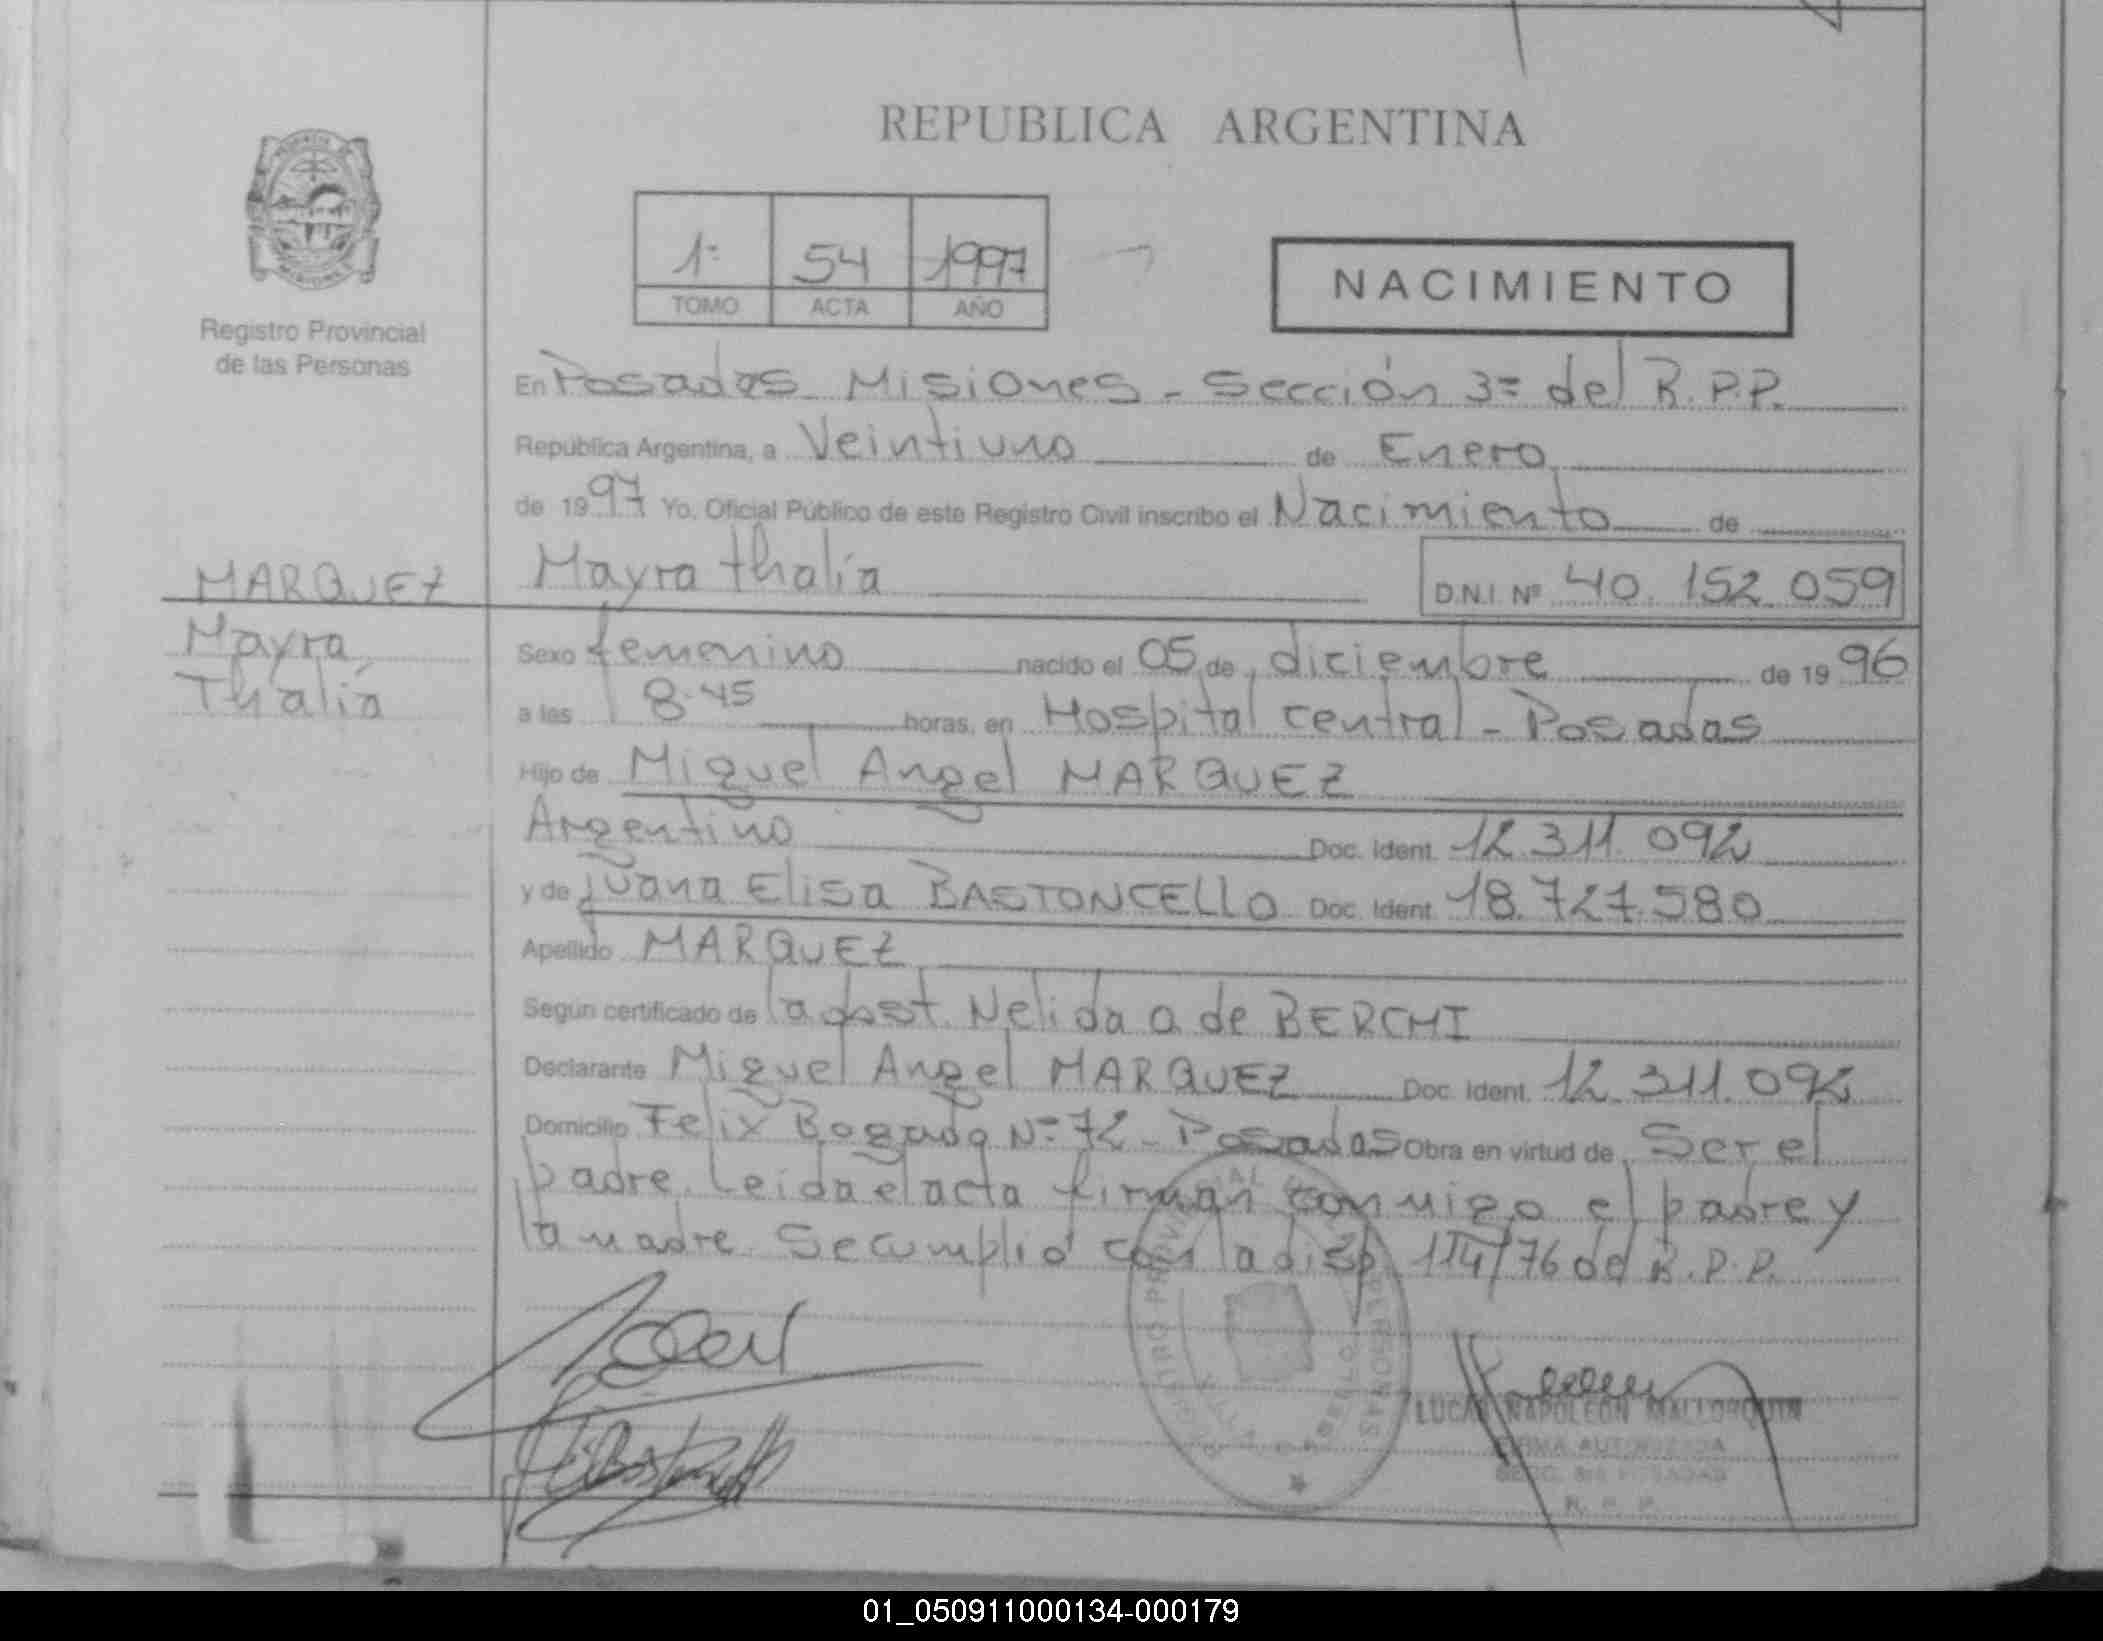 REPUBLICA ARGENTINA
1º 54 1997
TOMO ACTA AÑO
NACIMIENTO
Registro Provincial
de las Personas
En Posadas Misiones - Sección 3= del R.P.P.
República Argentina, a Veintiuno de Enero
de 1997 Yo, Oficial Público de este Registro Civil inscribo el Nacimiento de
MARQUEZ
Mayra
Thalía
Mayra thalía D.N.I. Nº 40.152.059
Sexo femenino nacido el 05 de diciembre de 1996
a las 8.45 horas, en Hospital central - Posadas
Hijo de Miguel Angel MARQUEZ
Argentino Doc. Ident. 12.311.092
y de Juana Elisa BASTONCELLO Doc. Ident. 18.727.580
Apellido MARQUEZ
Según certificado de la obst. Nelida a de BERCHI
Declarante Miguel Angel MARQUEZ Doc. Ident. 12.311.092
Domicilio Felix Bogado Nº 72 - Posadas Obra en virtud de Ser el
padre. Leida el acta firman conmigo el padre y
la madre. Se cumplió con la disp. 114/76 del R.P.P.
LUCAS NAPOLEON MALLORQUIN
FIRMA AUTORIZADA
SECC. 3ra POSADAS
R. P. P.
01_050911000134-000179